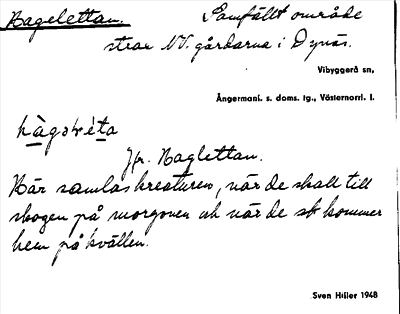 Hagelettan. Samfällt område
strax NV. gårdarna i Dynäs.
Vibyggerå sn,
Ångermanl. s. doms. tg., Västernorrl. l.
Jfr. Haglettan.
Här samlas kreaturen, när de skall till
skogen på morgonen och när de sk kommer
hem på kvällen.
Sven Hiller 1948